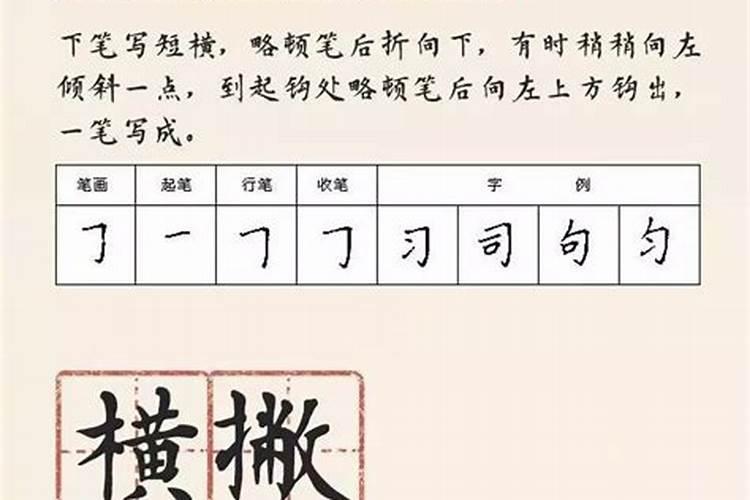 下笔写短横，略顿笔后折向下，有时稍稍向左
倾斜一点，到起钩处略顿笔后向左上方钩出，
一笔写成。
笔画 起笔 行笔 收笔 字 例
𠃌 一 𠃌 𠃌 习 司 句 匀
横 撇